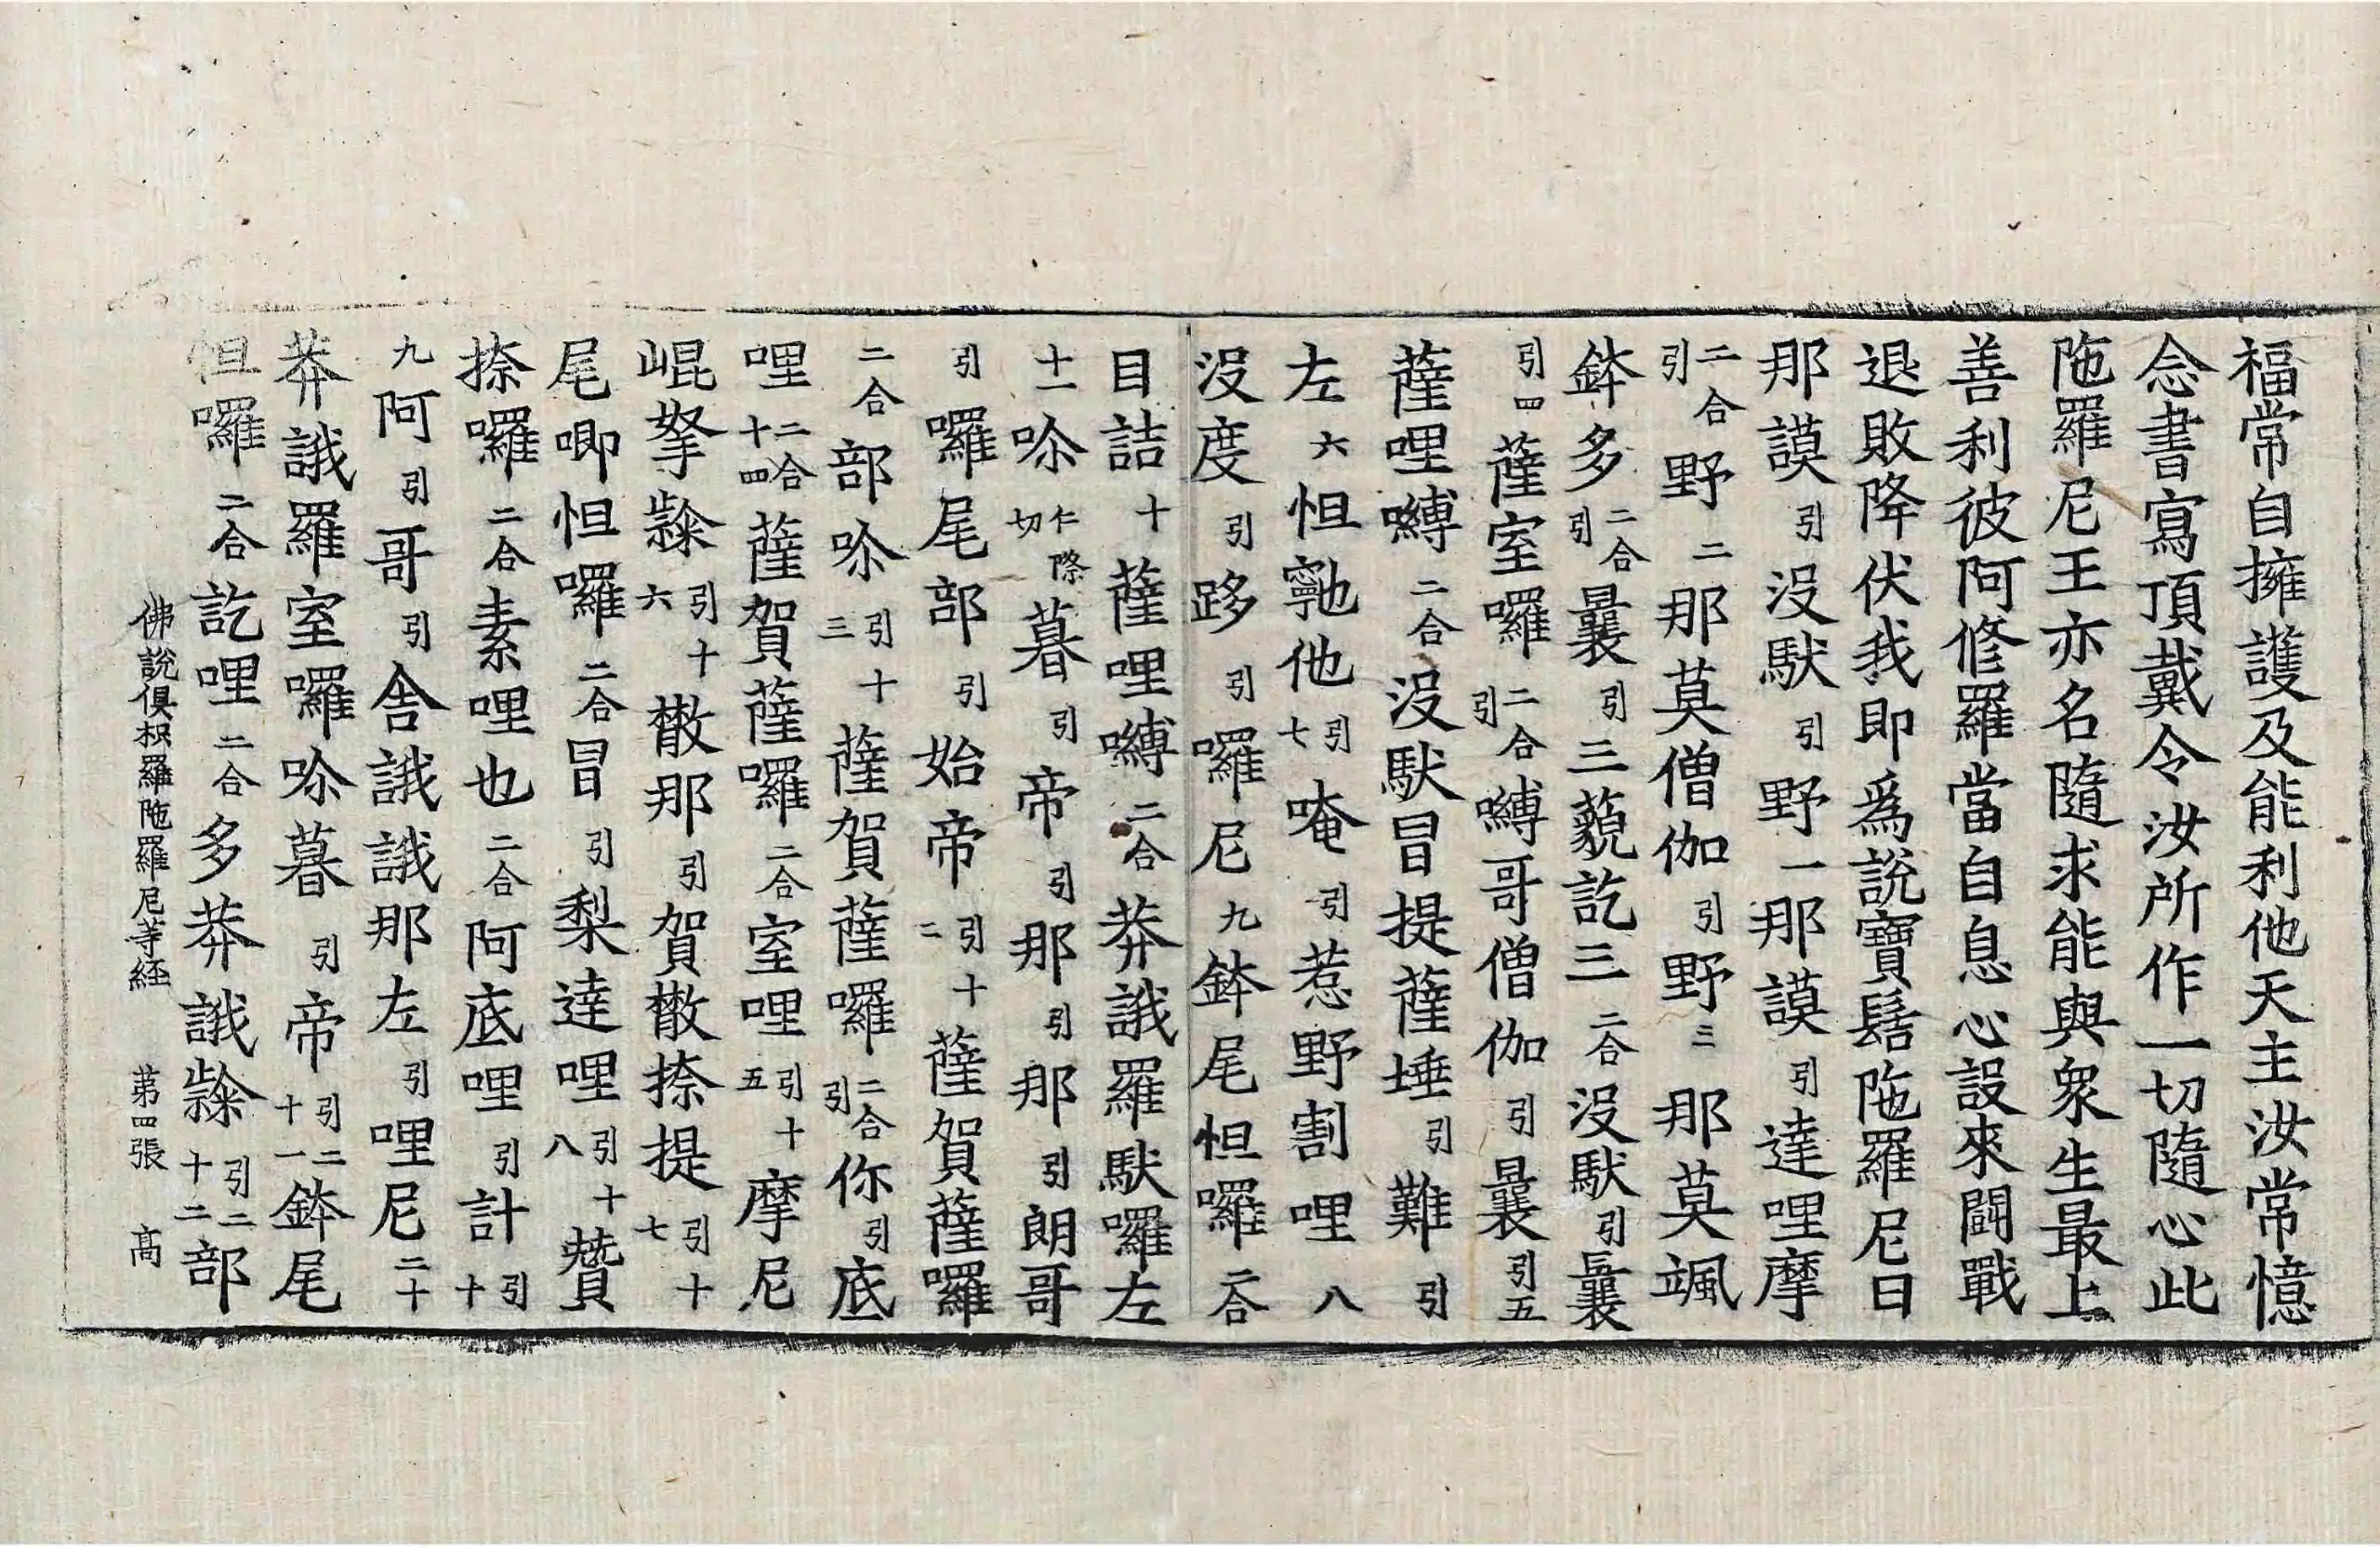 福常自擁護及能利他天主汝常憶
念書寫頂戴令汝所作一切隨心此
陁羅尼王亦名隨求能與衆生最上
善利彼阿修羅當自息心設來鬪戰
退敗降伏我即爲說寶髻陁羅尼曰
那謨引沒馱引野一那謨引達哩摩
二合引野二那莫僧伽引野三那莫颯
鉢多二合引曩引三藐訖三二合沒馱引曩
引四薩室囉二合引嚩哥僧伽引曩引五
薩哩嚩二合沒馱冒提薩埵引難引
左六怛寧他引七唵引惹野割哩八
沒度引跢引囉尼九鉢尾怛囉二合
目詰十薩哩嚩二合莽誐羅馱囉左
十一唥仁際切暮引帝引那引那引朗哥
引囉尾部引始帝引十二薩賀薩囉
二合部唥引十三薩賀薩囉二合引你引底
哩二合十四薩賀薩囉二合室哩引十五摩尼
崐拏㘑引十六橵那引賀橵捺提引十七
尾唧怛囉二合冒引梨達哩引十八贊
捺囉二合素哩也二合阿底哩引計引十
九阿引哥引舍誐誐那左引哩尼二十
莽誐羅室囉唥暮引帝引二十一鉢尾
怛囉二合訖哩二合多莽誐㘑引二十二部
佛說俱枳羅陁羅尼等経 第四張 髙